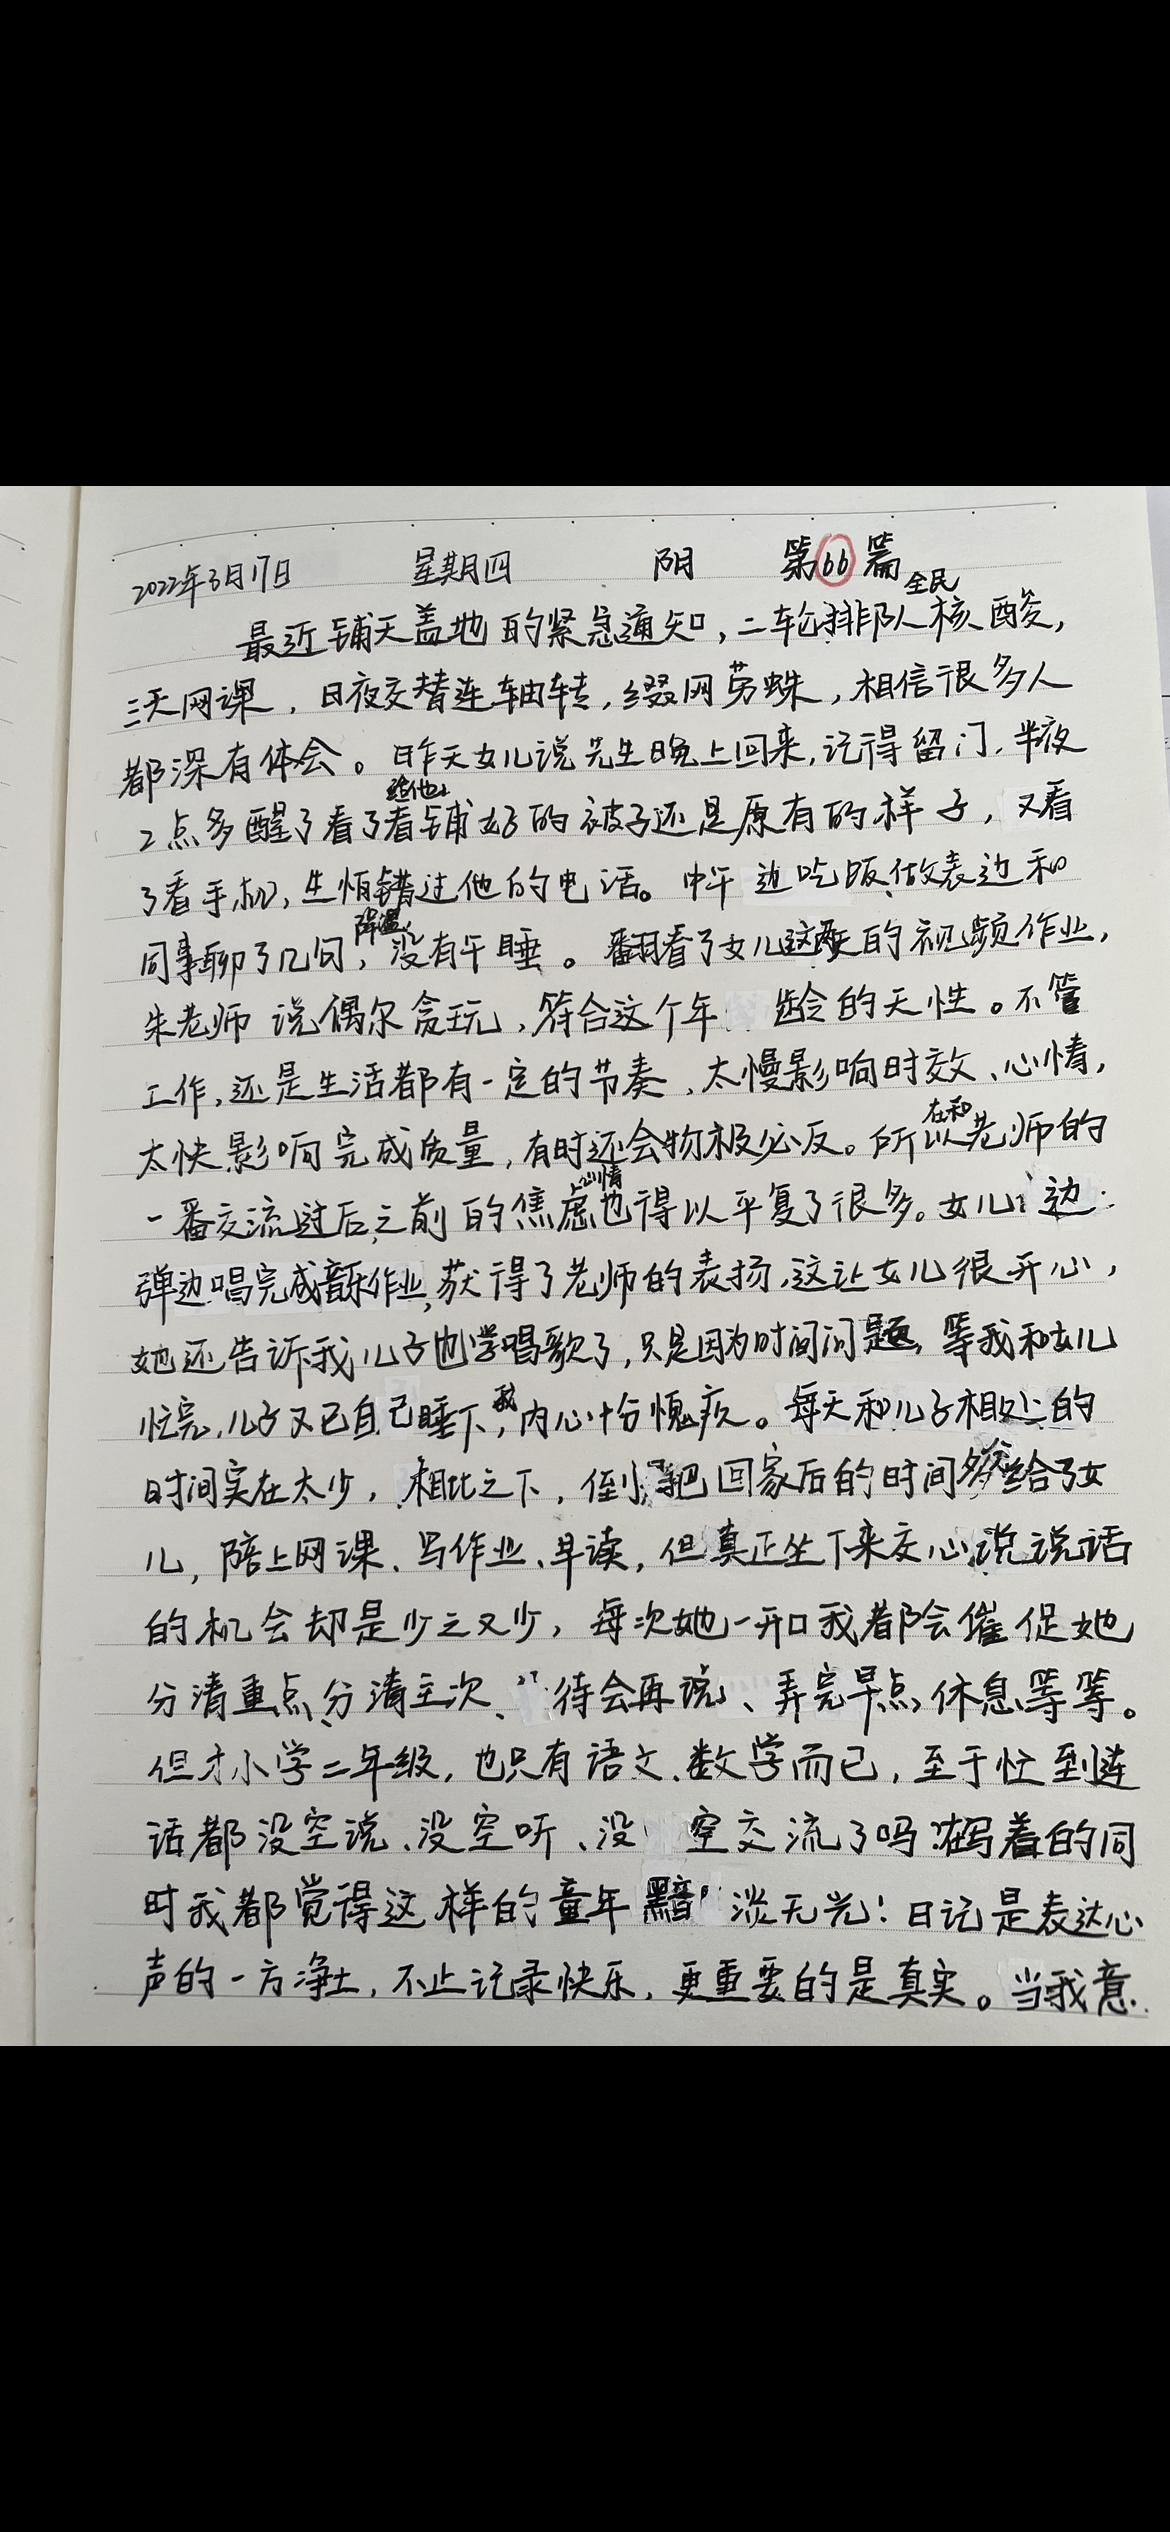 2022年3月17日 星期四 阴 第66篇
全民
最近铺天盖地的紧急通知,二轮排队核酸,
三天网课,日夜交替连轴转,缀网劳蛛,相信很多人
都深有体会。昨天女儿说先生晚上回来,记得留门,半夜
给他
2点多醒了看了看铺好的被子还是原有的样子,又看
了看手机,生怕错过他的电话。中午边吃饭做表边和
降温
同事聊了几句,没有午睡。翻看了女儿这两天的视频作业,
朱老师说偶尔贪玩,符合这个年龄的天性。不管
工作,还是生活都有一定的节奏,太慢影响时效、心情,
在和
太快影响完成质量,有时还会物极必反。所以老师的
心情
一番交流过后,之前的焦虑也得以平复了很多。女儿边
弹边唱完成音乐作业,获得了老师的表扬,这让女儿很开心,
她还告诉我儿子也学唱歌了,只是因为时间问题,等我和女儿
我
忙完,儿子又已自己睡下,内心十份愧疚。每天和儿子相处的
时间实在太少,相比之下,倒把回家后的时间多分给了女
儿,陪上网课、写作业、早读,但真正坐下来交心说说话
的机会却是少之又少,每次她一开口我都会催促她
分清重点、分清主次、待会再说、弄完早点休息等等。
但才小学二年级,也只有语文、数学而已,至于忙到连
话都没空说、没空听、没空交流了吗?在写着的同
时我都觉得这样的童年黯淡无光!日记是表达心
声的一方净土,不止记录快乐,更重要的是真实。当我意